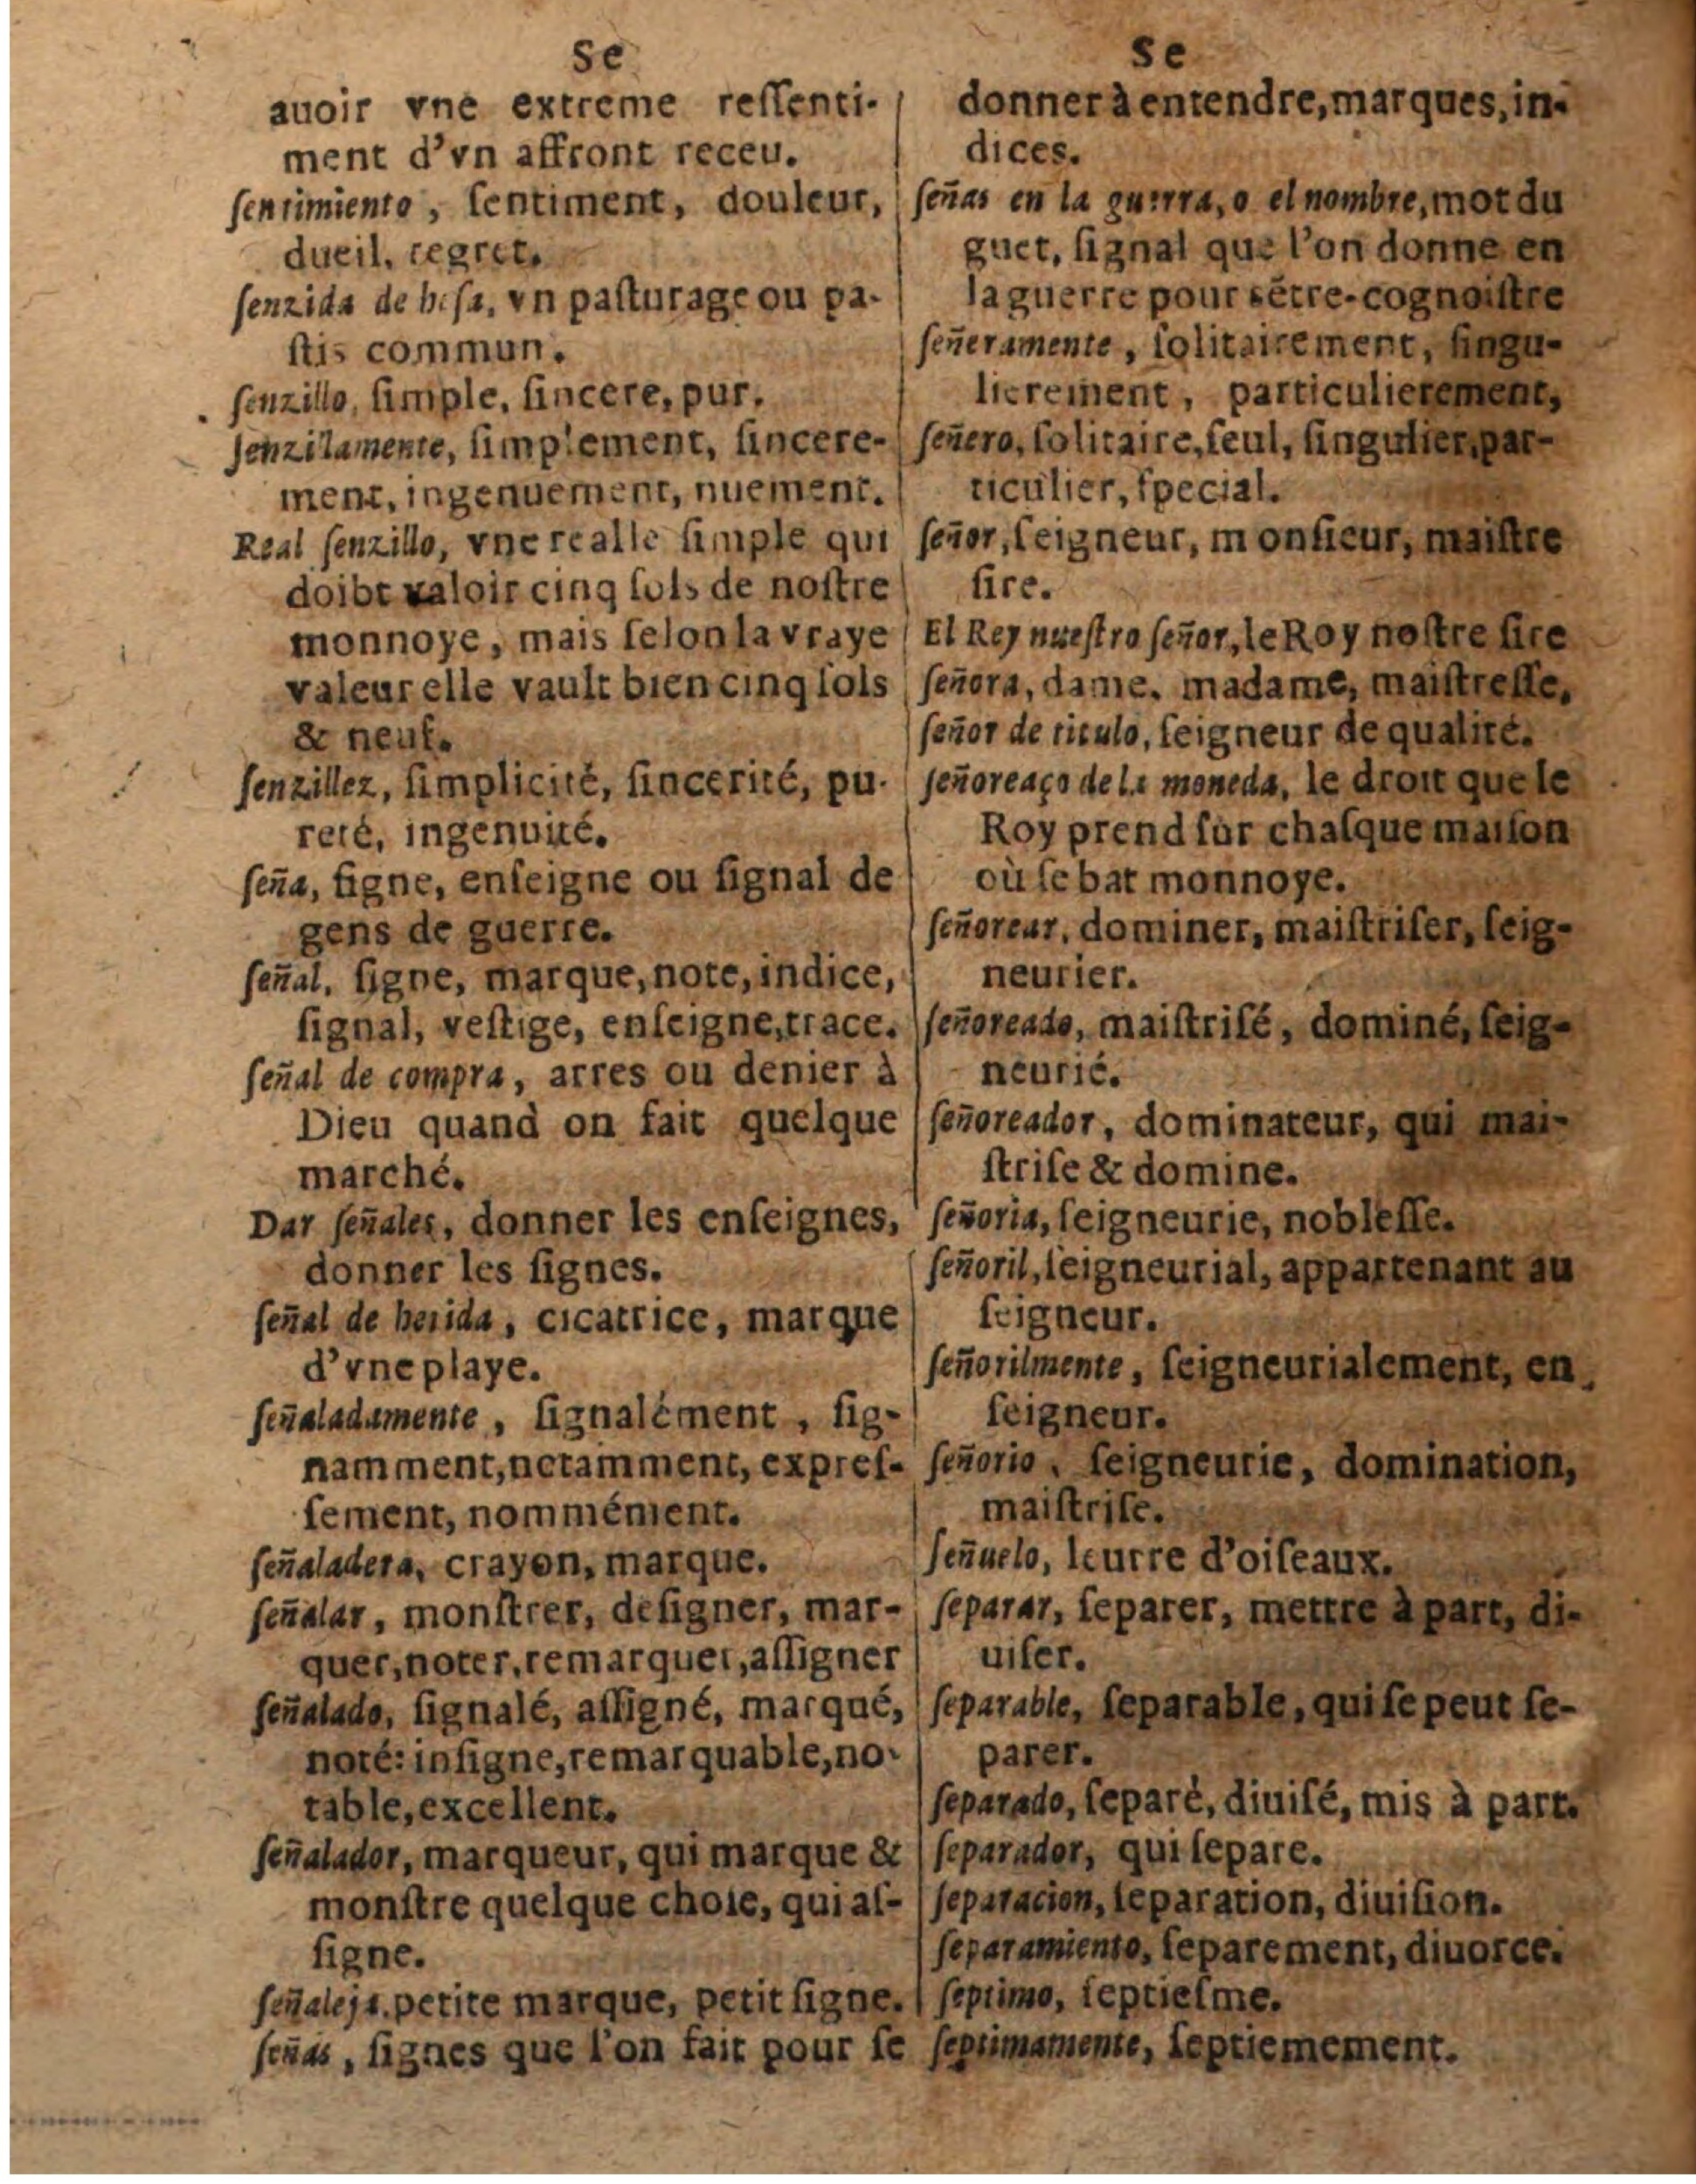 Se
auoir vne extreme reſſenti-
ment d'vn affront receu.
ſentimiento, ſentiment, douleur,
dueil, regret.
ſenzida de heſa, vn paſturage ou pa-
ſtis commun.
ſenzillo, ſimple, ſincere, pur.
ſenzillamente, ſimplement, ſincere-
ment, ingenuement, nuement.
Real ſenzillo, vne realle ſimple qui
doibt valoir cinq ſols de noſtre
monnoye, mais ſelon la vraye
valeur elle vault bien cinq ſols
& neuf.
ſenzillez, ſimplicité, ſincerité, pu-
reté, ingenuité.
ſeña, ſigne, enſeigne ou ſignal de
gens de guerre.
ſeñal, ſigne, marque, note, indice,
ſignal, veſtige, enſeigne, trace.
ſeñal de compra, arres ou denier à
Dieu quand on fait quelque
marché.
Dar ſeñales, donner les enſeignes,
donner les ſignes.
ſeñal de herida, cicatrice, marque
d'vne playe.
ſeñaladamente, ſignalément, ſig-
namment, notamment, expreſ-
ſement, nommément.
ſeñaladera, crayon, marque.
ſeñalar, monſtrer, deſigner, mar-
quer, noter, remarquer, aſſigner
ſeñalado, ſignalé, aſſigné, marqué,
noté: inſigne, remarquable, no-
table, excellent.
ſeñalador, marqueur, qui marque &
monſtre quelque choſe, qui aſ-
ſigne.
ſeñaleja. petite marque, petit ſigne.
ſeñas, ſignes que l'on fait pour ſe
Se
donner à entendre, marques, in-
dices.
ſeñas en la guerra, o el nombre, mot du
guet, ſignal que l'on donne en
la guerre pour s'ētre-cognoiſtre
ſeñeramente, ſolitairement, ſingu-
lierement, particulierement,
ſeñero, ſolitaire, ſeul, ſingulier, par-
ticulier, ſpecial.
ſeñor, ſeigneur, monſieur, maiſtre
ſire.
El Rey nueſtro ſeñor, le Roy noſtre ſire
ſeñora, dame, madame, maiſtreſſe,
ſeñor de titulo, ſeigneur de qualité.
ſeñoreaço de la moneda, le droit que le
Roy prend ſur chaſque maiſon
où ſe bat monnoye.
ſeñorear, dominer, maiſtriſer, ſeig-
neurier.
ſeñoreado, maiſtriſé, dominé, ſeig-
neurié.
ſeñoreador, dominateur, qui mai-
ſtriſe & domine.
ſeñoria, ſeigneurie, nobleſſe.
ſeñoril, ſeigneurial, appartenant au
ſeigneur.
ſeñorilmente, ſeigneurialement, en
ſeigneur.
ſeñorio, ſeigneurie, domination,
maiſtriſe.
ſeñuelo, leurre d'oiſeaux.
ſeparar, ſeparer, mettre à part, di-
uiſer.
ſeparable, ſeparable, qui ſe peut ſe-
parer.
ſeparado, ſeparè, diuiſé, mis à part.
ſeparador, qui ſepare.
ſeparacion, ſeparation, diuiſion.
ſeparamiento, ſeparement, diuorce.
ſeptimo, ſeptieſme.
ſeptimamente, ſeptiemement.